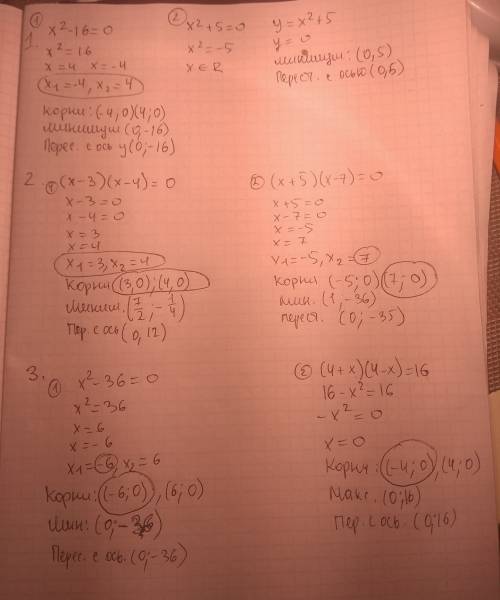 1.
① x²-16=0
x²=16
x=4 x=-4
x₁=-4, x₂=4
Корни: (-4;0)(4;0)
Минимум (0;-16)
Перес. с ось y (0;-16)
② x²+5=0
x²=-5
x∈R
y=x²+5
y=0
минимум: (0,5)
Перест. с осью (0,5)
2.
① (x-3)(x-4)=0
x-3=0
x-4=0
x=3
x=4
x₁=3, x₂=4
Корни (3,0);(4,0)
Миним. (7/2;-1/4)
Пер. с ось (0,12)
② (x+5)(x-7)=0
x+5=0
x-7=0
x=-5
x=7
x₁=-5, x₂=7
Корни (-5;0)(7;0)
мин. (1;-36)
перест. (0;-35)
3.
① x²-36=0
x²=36
x=6
x=-6
x₁=-6, x₂=6
Корни: (-6;0),(6;0)
Мин: (0;-36)
Перес. с ось. (0;-36)
② (4+x)(4-x)=16
16-x²=16
-x²=0
x=0
Корни: (-4;0),(4;0)
Макс. (0;16)
Пер. с ось. (0;16)